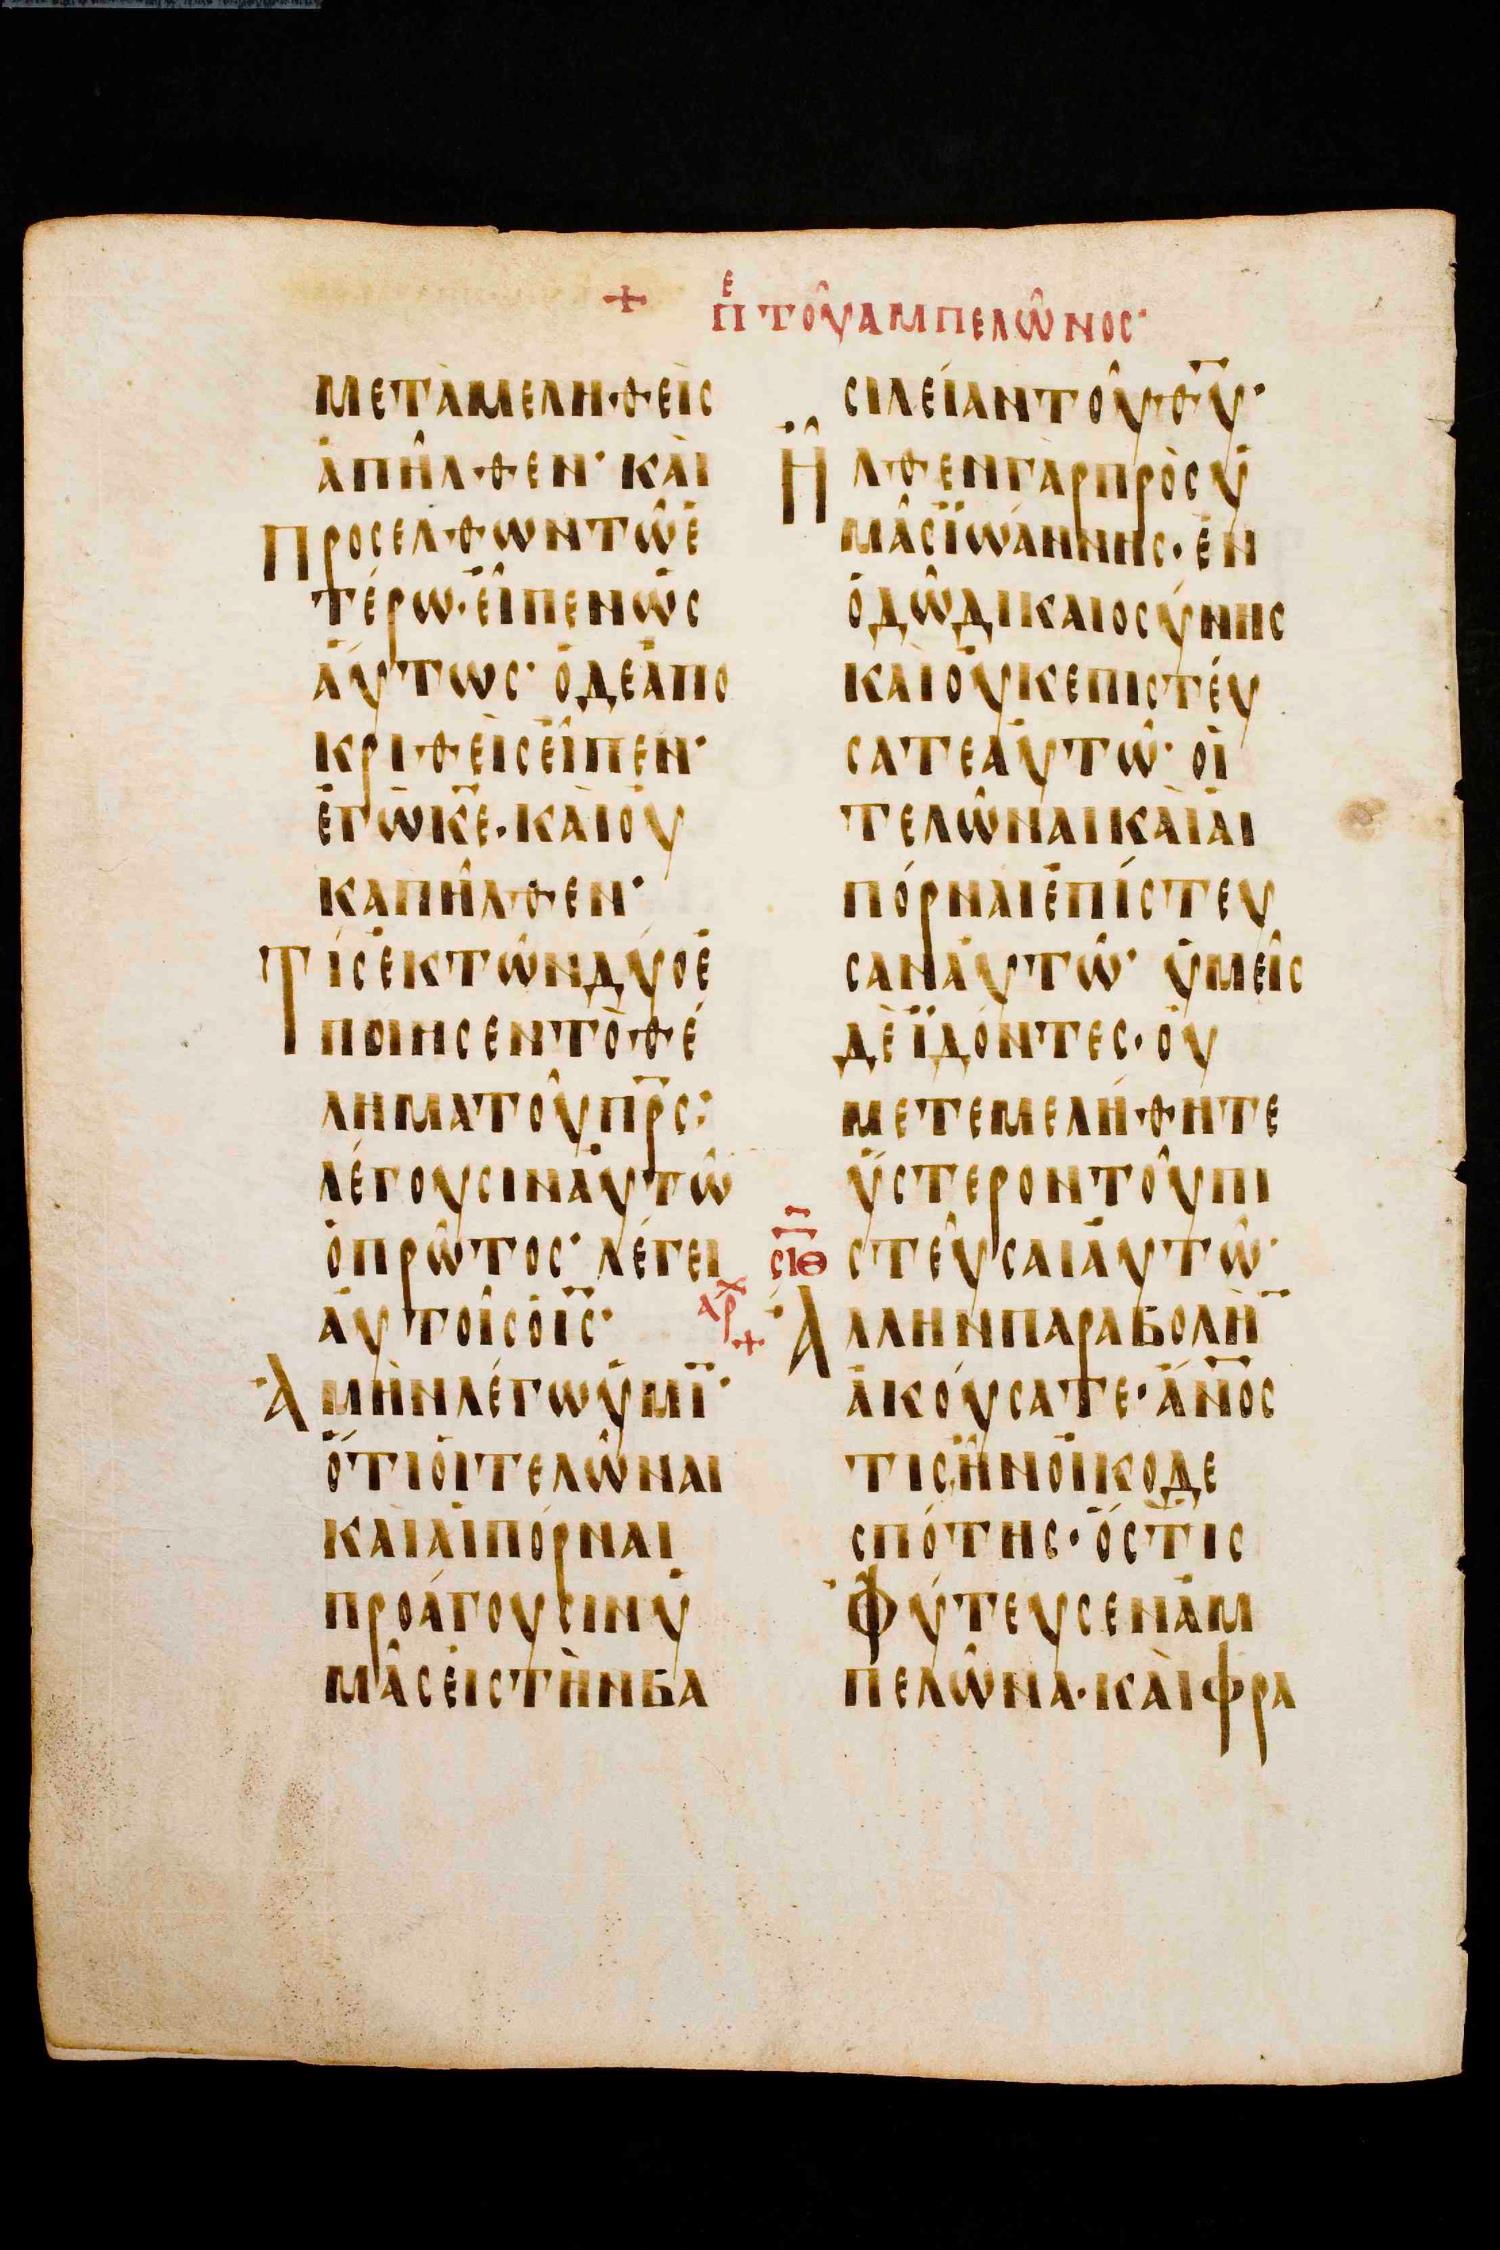 + ε
π τοῦ ἀμπελῶνος·
μεταμεληθεὶς
ἀπῆλθεν· καὶ
Προσελθων τῶ ἑ
τέρω· εἶπεν ὡσ
αύτως· ὁ δε ἀπο
κριθεὶς εἶπεν·
ἐγὼ κ̅ε̅· καὶ οὐ
κ απῆλθεν·
Τίς ἐκ των δύο ἐ
ποιησεν τὸ θέ
λημα τοῦ π̅ρ̅ς̅:
λέγουσιν αυτῶ
ὁ πρῶτος· λέγει
ἀυτοῖς ὁ ι̅ς̅·
Ἀμὴν λέγω ὑμῑ·
ὅτι ὁι τελῶναι
και ἁι πόρναι
προάγουσιν ὑ
μᾶς ἐις τὴν βα
σιλείαν τοῦ θ̅υ̅·
Ἦλθεν γὰρ πρὸς ὑ
μᾶς ϊωάννης· ἐν
ὁδῶ δικαιοσύνης
καὶ οὐκ επιστεύ
σατε αὐτῶ· οἱ
τελῶναι καὶ ἁι
πόρναι ἐπίστευ
σαν ἀυτῶ· ὑμεῖς
δὲ ϊδόντες· οὐ
μετεμελήθητε
ὕστερον τοῦ πι
στεῦσαι ἀυτῶ·
σιθ
αρχ +
Ἄλλην παραβολὴ̅
ἀκούσατε· ἄ̅ν̅ο̅ς̅
τις ἦν οἰκοδε
σπότης· ὅστις
ἐφύτευσεν ἀμ
πελῶνα· καὶ φρα